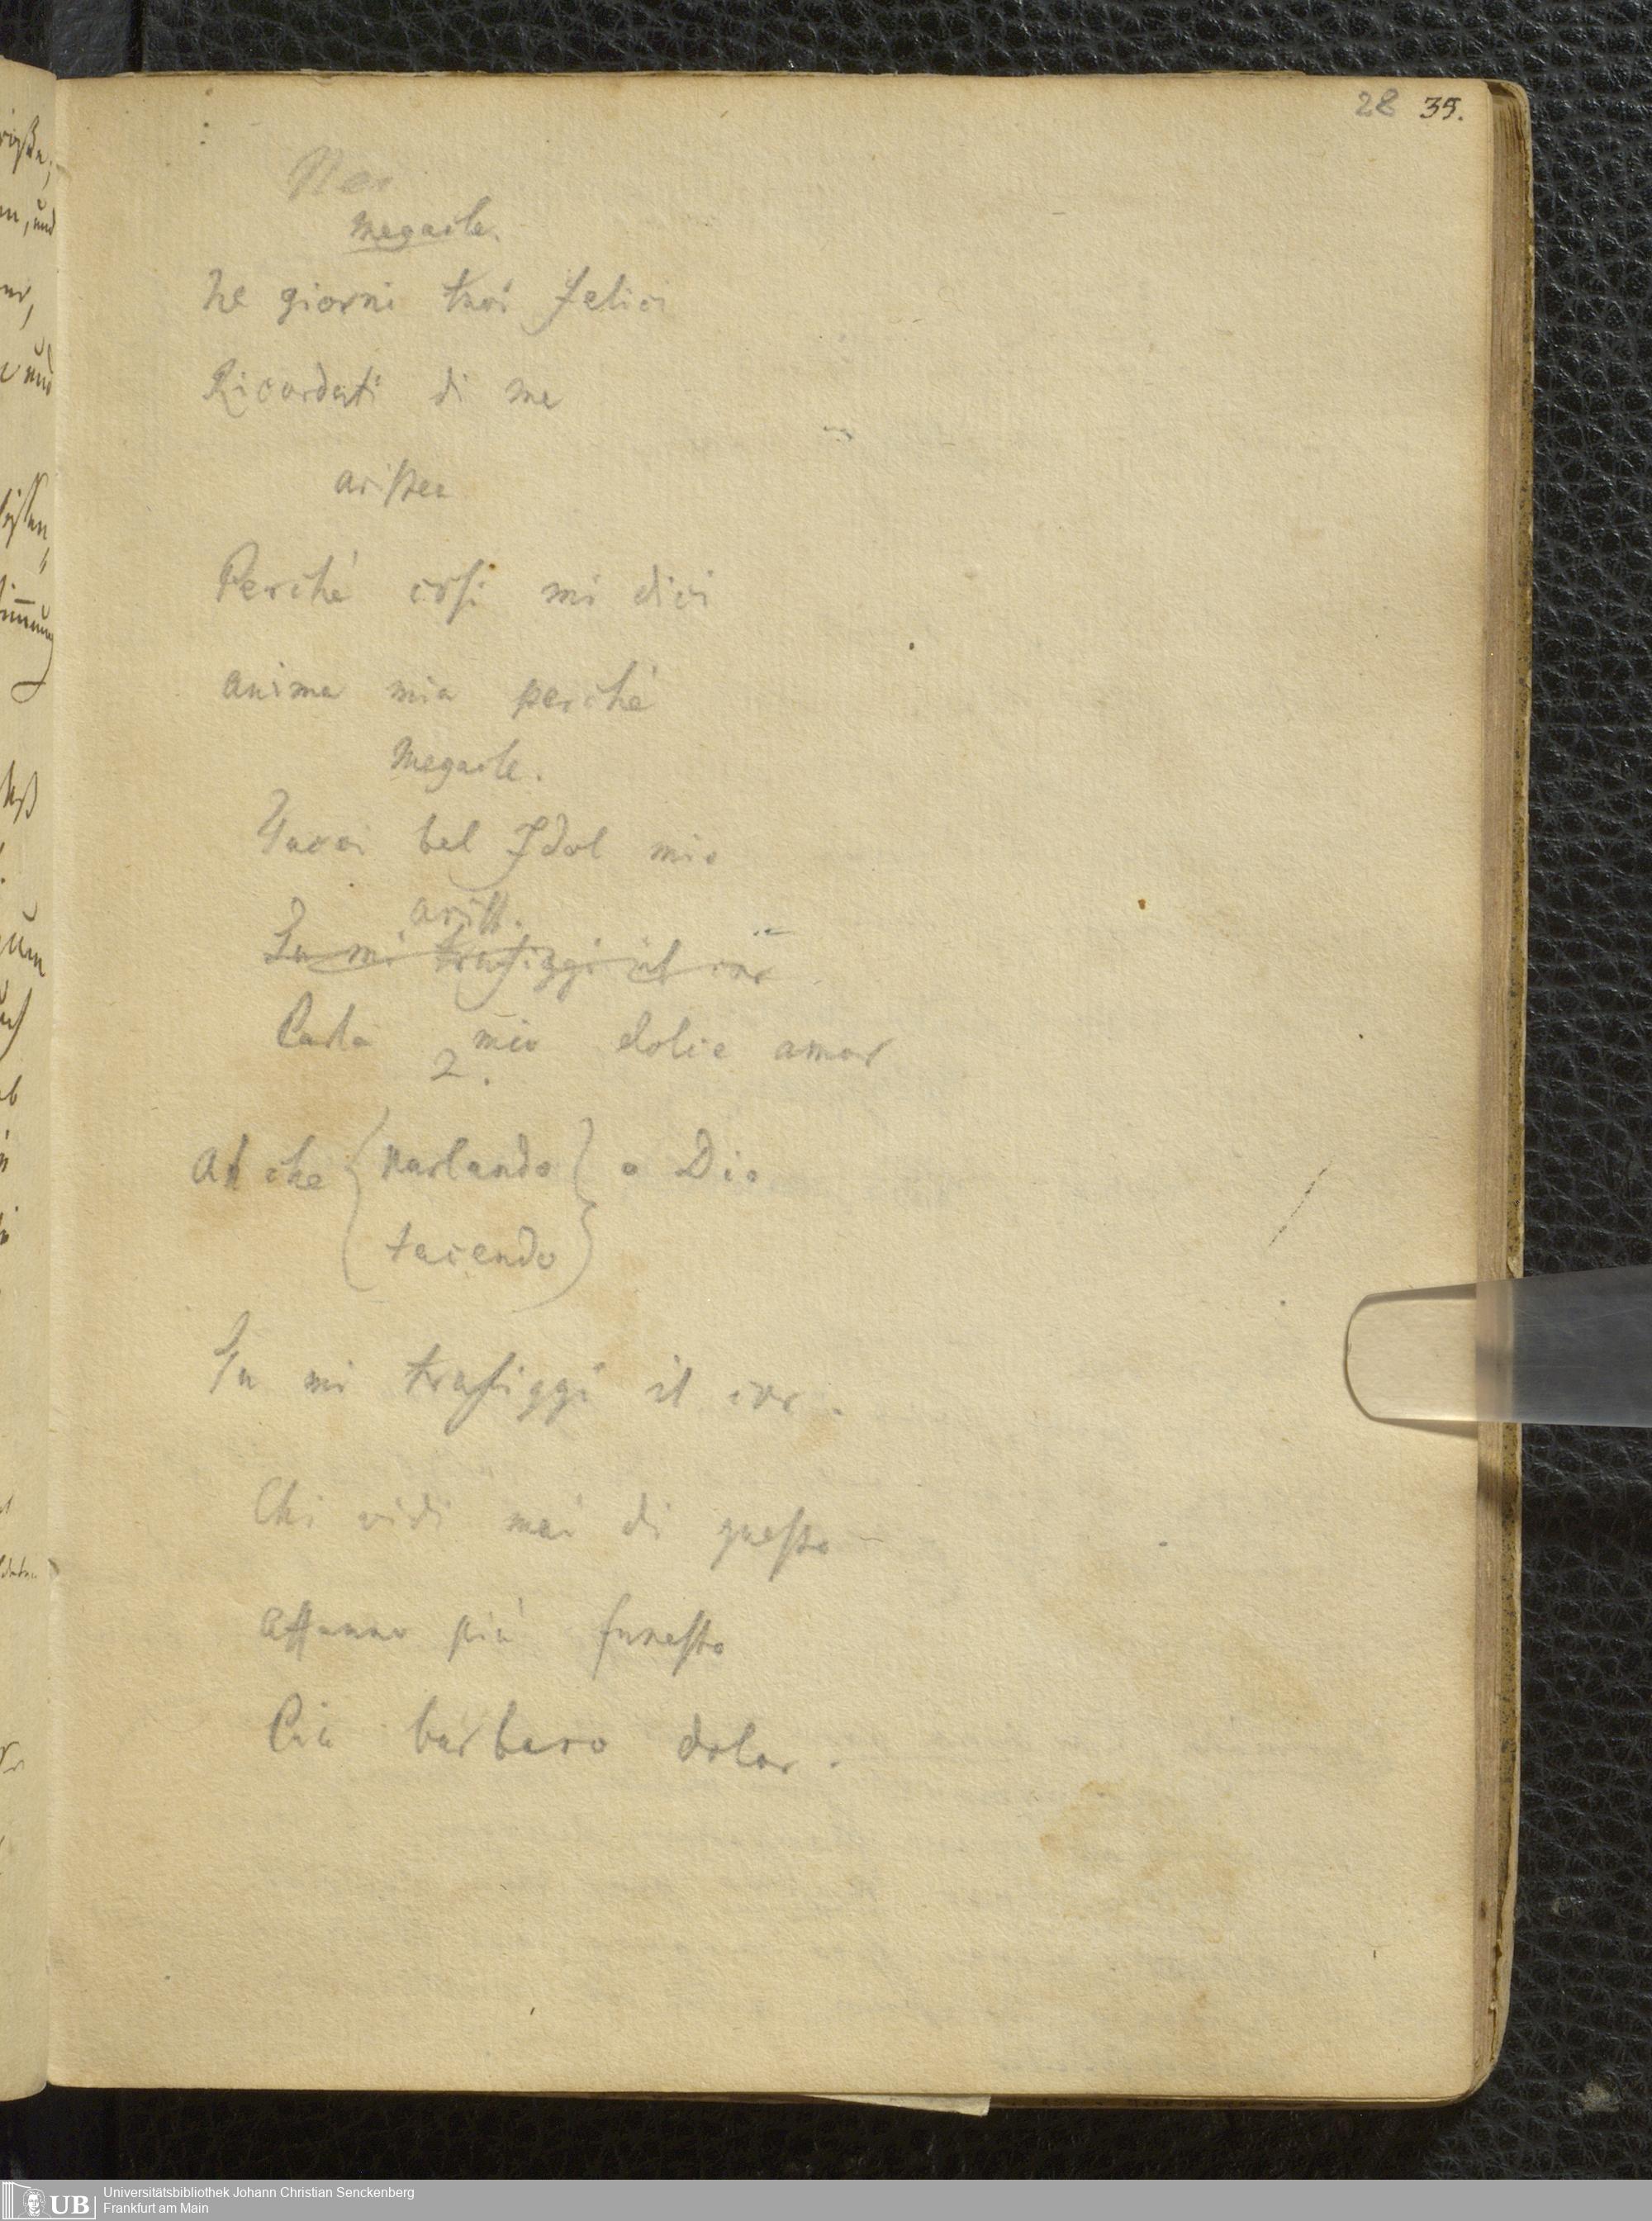 28 35.
Ne
Megacle.
Ne giorni tuoi felici
Ricordati di me
aristea
Perché cosi mi dici
anima mia perché
Megacle.
Taci bel Idol mio
arist.
Tu mi trafiggi il cor
Parla mio dolce amor
2.
Ah che { parlando } o Dio
{ tacendo }
Tu mi trafiggi il cor.
Chi vidi mai di questo
Affanno più funesto
Più barbaro dolor.
UB Universitätsbibliothek Johann Christian Senckenberg
Frankfurt am Main